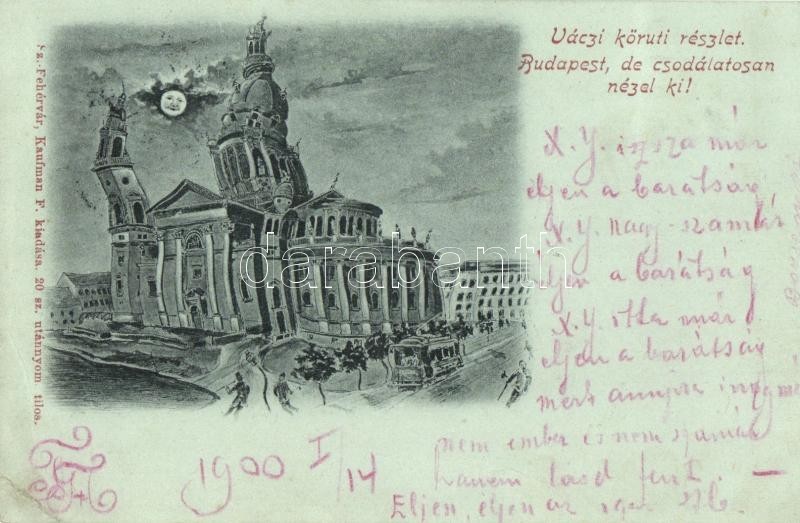 Váczi köruti részlet.
Budapest, de csodálatosan
nézel ki!
X. Y. issza már
éljen a barátság,
X. Y. nagy szamár
éljen a barátság
X. Y. itta már
éljen a barátság
mert annyira
nem ember és nem szamár
hanem
Éljen, éljen az igaz
1900 I/14
Sz.-Fehérvár, Kaufman F. kiadása. 20 sz. utánnyom tilos.
darabanth